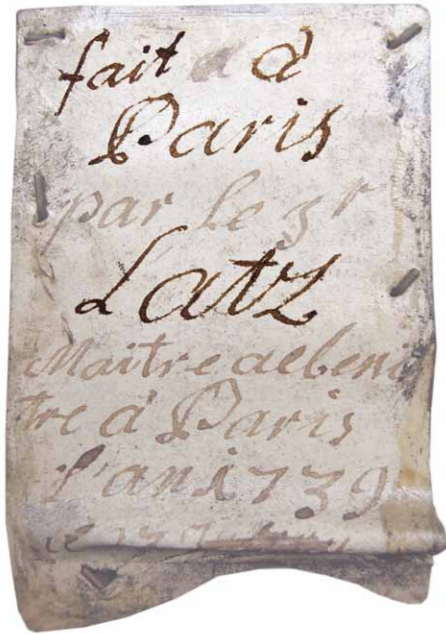 fait à
Paris
par le Sr
Latz
Maitre aebenis
tre à Paris
l'an 1739